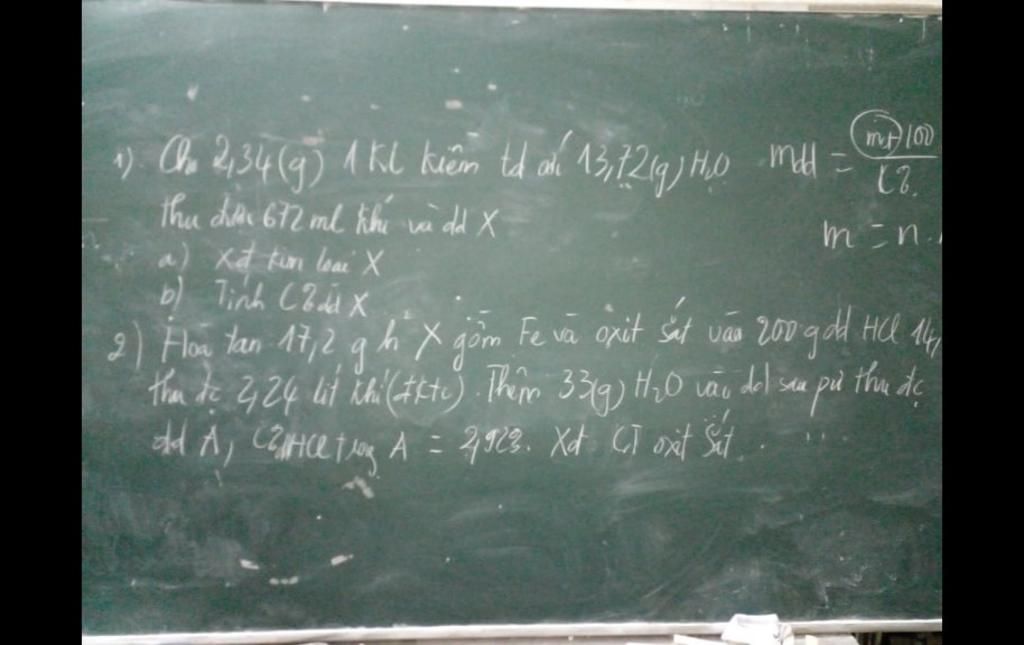 1) Cho 2,34(g) 1 KL kiềm td với 13,72(g) H₂O
thu được 672 ml khí và dd X
a) Xđ kim loại X
b) Tính C% dd X
2) Hoà tan 17,2 g h² X gồm Fe và oxit sắt vào 200 g dd HCl 14,
thu đc 2,24 lít khí (đktc). Thêm 33(g) H₂O vào dd sau pứ thu đc
dd A, C% HCl trong A = 2,92%. Xđ CT oxit sắt.
mdd = mct.100 / C%
m = n.